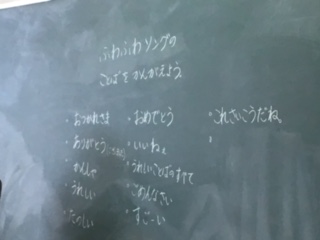 ふわふわソングの
ことばをかんがえよう。
・おつかれさま
・ありがとう
・かんしゃ
・うれしい
・たのしい
・おめでとう
・いいね。
・うれしいことばのすべて
・ごめんなさい
・すごーい
・これさいこうだね。
・